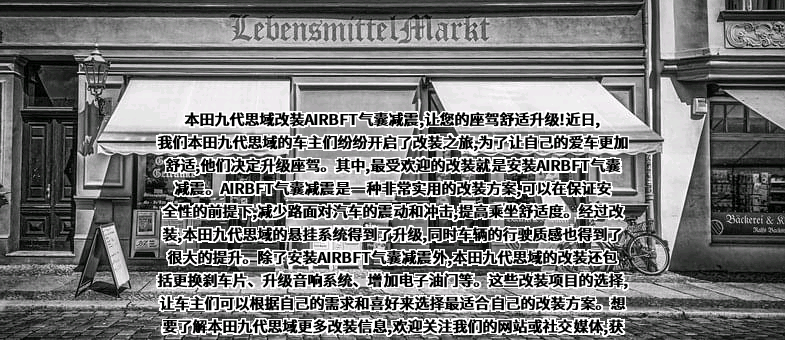 LebensmittelMarkt
本田九代思域改装AIRBFT气囊减震,让您的座驾舒适升级!近日,
我们本田九代思域的车主们纷纷开启了改装之旅,为了让自己的爱车更加
舒适,他们决定升级座驾。其中,最受欢迎的改装就是安装AIRBFT气囊
减震。AIRBFT气囊减震是一种非常实用的改装方案,可以在保证安
全性的前提下,减少路面对汽车的震动和冲击,提高乘坐舒适度。经过改
装,本田九代思域的悬挂系统得到了升级,同时车辆的行驶质感也得到了
很大的提升。除了安装AIRBFT气囊减震外,本田九代思域的改装还包
括更换刹车片、升级音响系统、增加电子油门等。这些改装项目的选择,
让车主们可以根据自己的需求和喜好来选择最适合自己的改装方案。想
要了解本田九代思域更多改装信息,欢迎关注我们的网站或社交媒体,获
Bäckerei & K